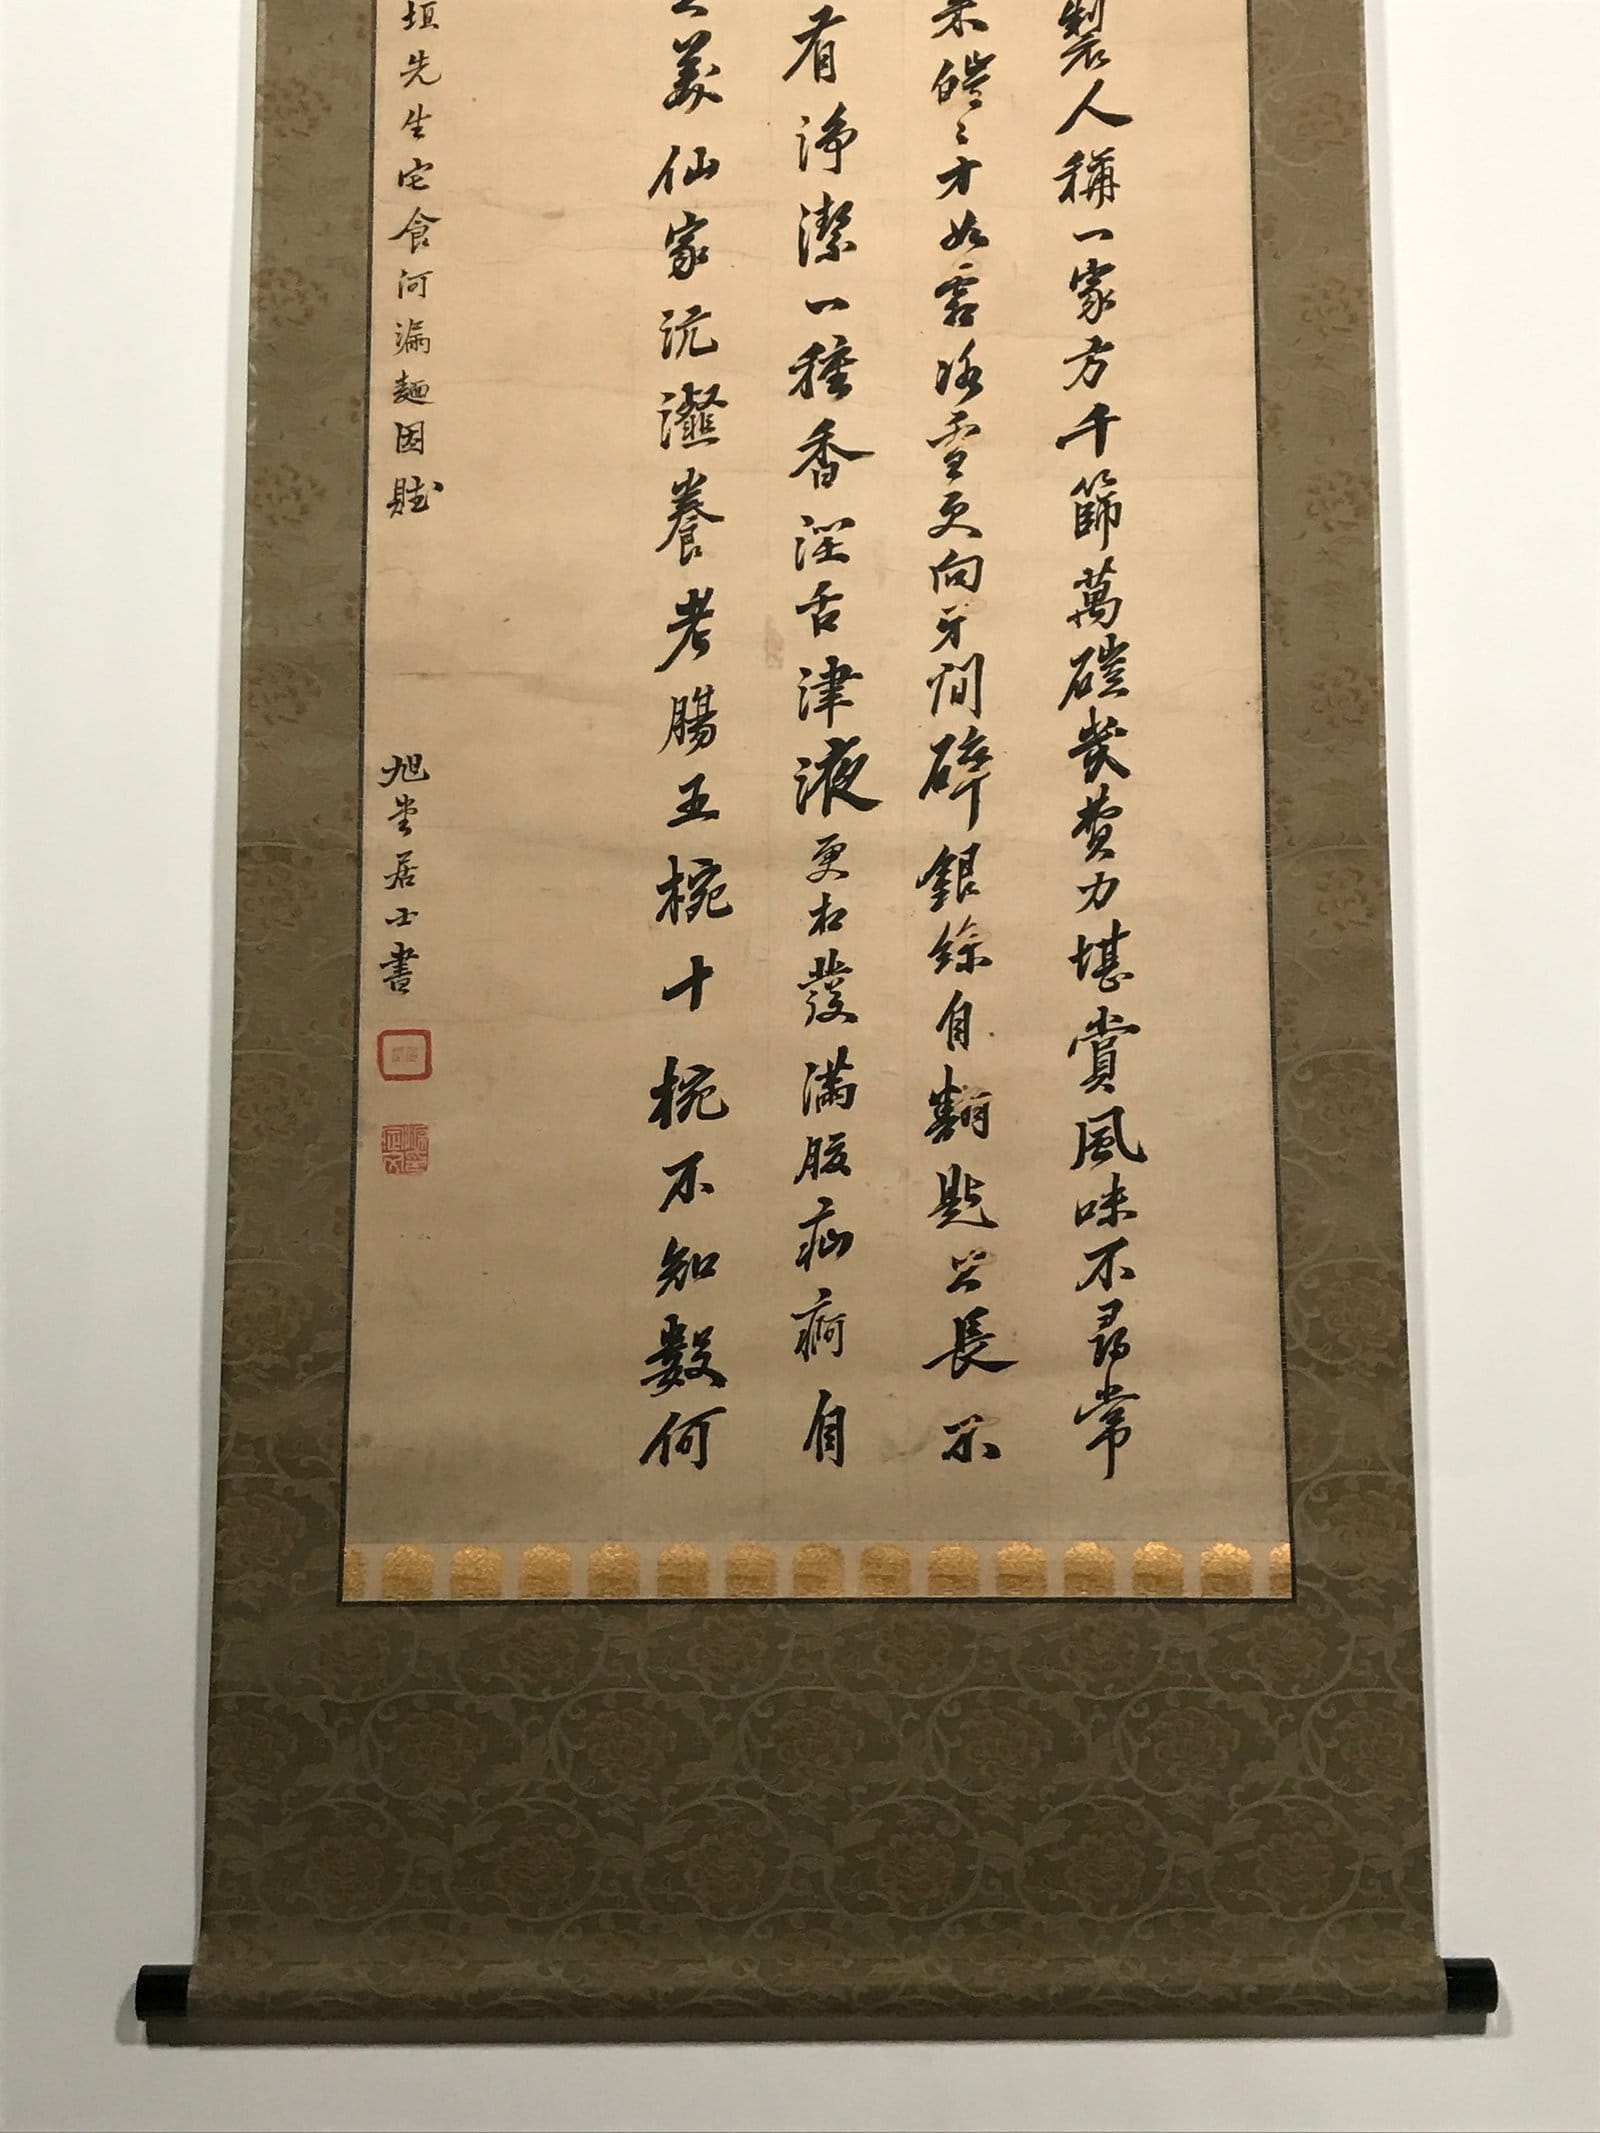 製人稱一家方千篩萬磑幾費力堪賞風味不尋常
皚〻才如霜如雪更向牙間碎銀線自翻匙上長不
有淨潔一種香溼舌津液更相發滿腹疝痾自
美仙家沆瀣養老腸五椀十椀不知數何
垣先生宅食河漏麵因賦
旭堂居士書